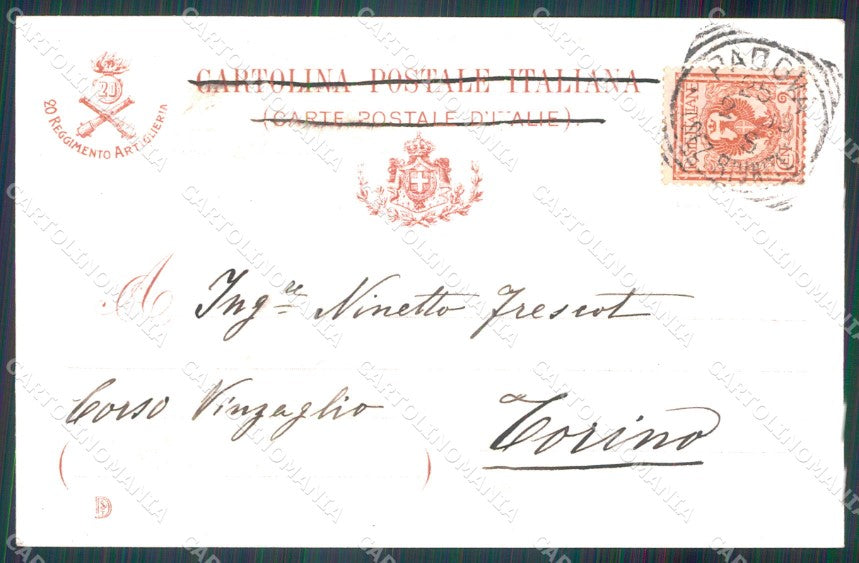 20
20 REGGIMENTO ARTIGLIERIA
CARTOLINA POSTALE ITALIANA
(CARTE POSTALE D'ITALIE).
PADOVA
A Ingre Ninetto Frescot
Corso Vinzaglio
Torino
( )
CARTOLINOMANIA